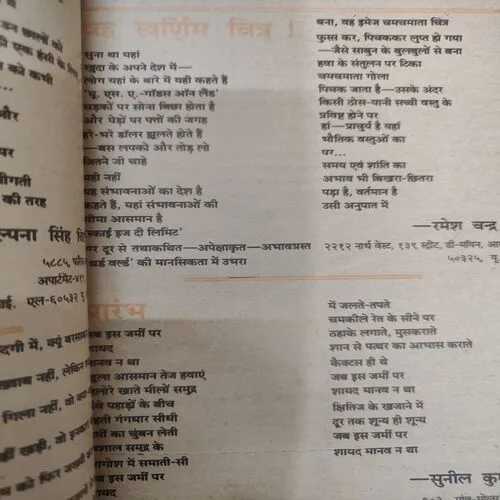 यह स्वर्णिम चित्र !
सुना था यहां
खुदा के अपने देश में—
लोग यहां के बारे में यही कहते हैं
'यू. एस. ए.-गॉडस ऑन लैंड'
सड़कों पर सोना बिछा होता है
और पेड़ों पर पत्तों की जगह
हरे-भरे डॉलर झूलते होते हैं
—बस लपको और तोड़ लो
जितने जी चाहे
यही नहीं
यह संभावनाओं का देश है
कहते हैं, यहां संभावनाओं की
सीमा आसमान है
'स्काई इज दी लिमिट'
पर दूर से तथाकथित—अपेक्षाकृत—अभावग्रस्त
'थर्ड वर्ल्ड' की मानसिकता में उभरा
बना, वह इमेज चमचमाता चित्र
फुस्स कर, पिचककर लुप्त हो गया
—जैसे साबुन के बुलबुलों से बना
हवा के संतुलन पर टिका
चमचमाता गोला
पिचक जाता है—उसके अंदर
किसी ठोस-यानी सच्ची वस्तु के
प्रविष्ट होने पर
हां—प्राचुर्य है यहां
भौतिक वस्तुओं का
पर...
समय एवं शांति का
अभाव भी बिखरा-छितरा
पड़ा है, वर्तमान है
उसी अनुपात में
—रमेश चन्द्र
२२१२ नार्थ वेस्ट, १३९ स्ट्रीट, डी-मॉयन,
५०३२५, यू.
प्रारंभ
जब इस जमीं पर
शायद
मानव न था
खुला आसमान तेज हवाएं
हिलोरे खाते मीलों समुद्र
ऊंचे पहाड़ों के बीच
बहती गंगधार सीधी
जमीं का चुंबन लेती
विशाल समुद्र के
आगोश में समाती-सी
जब इस जमीं पर
शायद
में जलते-तपते
चमकीले रेत के सीने पर
ठहाके लगाते, मुसकराते
शान से पत्थर का आभास कराते
कैक्टस ही थे
जब इस जमीं पर
शायद मानव न था
क्षितिज के खजाने में
दूर तक शून्य ही शून्य
जब इस जमीं पर
शायद मानव न था
—सुनील कु
उन छालों को
की एक हंसी के लिए
को कभी
और
पर
की तरह
कल्पना सिंह
५८८५,
अपार्टमेंट-
आई. एल-६०५३२
में, क्यूं
ख्वाब नहीं, लेकिन
गिला नहीं, वो
खड़ी, वो
को फिर